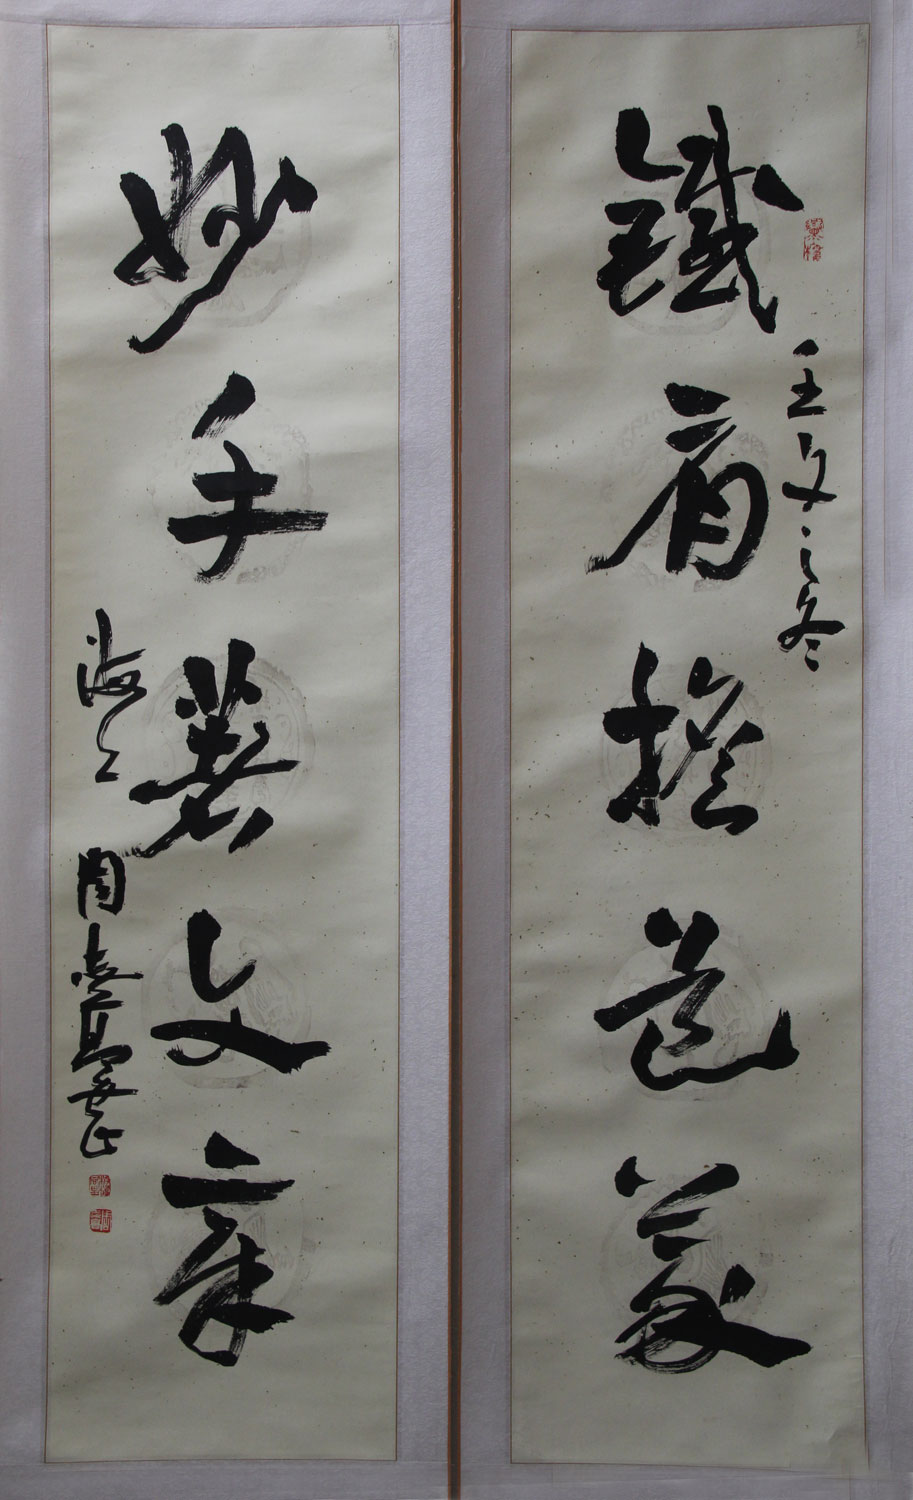 鐵肩擔道義
壬文之冬
妙手著文章
海上周志高書